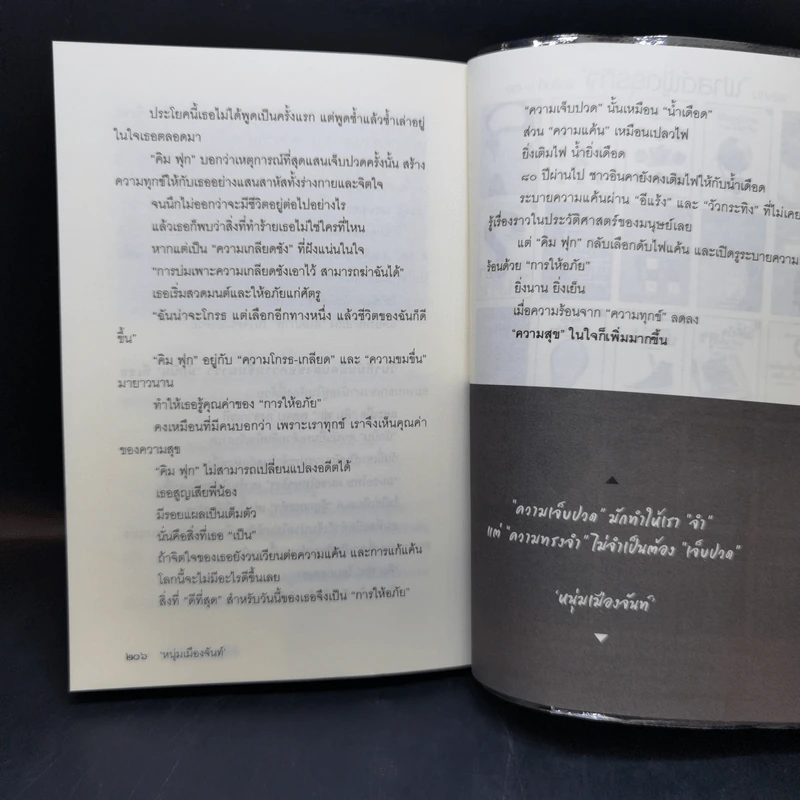 ประโยคนี้เธอไม่ได้พูดเป็นครั้งแรก แต่พูดซ้ำแล้วซ้ำเล่าอยู่
ในใจเธอตลอดมา
“คิม ฟุก” บอกว่าเหตุการณ์ที่สุดแสนเจ็บปวดครั้งนั้น สร้าง
ความทุกข์ให้กับเธออย่างแสนสาหัสทั้งร่างกายและจิตใจ
จนนึกไม่ออกว่าจะมีชีวิตอยู่ต่อไปอย่างไร
แล้วเธอก็พบว่าสิ่งที่ทำร้ายเธอไม่ใช่ใครที่ไหน
หากแต่เป็น “ความเกลียดชัง” ที่ฝังแน่นในใจ
“การบ่มเพาะความเกลียดชังเอาไว้ สามารถฆ่าฉันได้”
เธอเริ่มสวดมนต์และให้อภัยแก่ศัตรู
“ฉันน่าจะโกรธ แต่เลือกอีกทางหนึ่ง แล้วชีวิตของฉันก็ดี
ขึ้น”
“คิม ฟุก” อยู่กับ “ความโกรธ-เกลียด” และ “ความขมขื่น”
มายาวนาน
ทำให้เธอรู้คุณค่าของ “การให้อภัย”
คงเหมือนที่มีคนบอกว่า เพราะเราทุกข์ เราจึงเห็นคุณค่า
ของความสุข
“คิม ฟุก” ไม่สามารถเปลี่ยนแปลงอดีตได้
เธอสูญเสียพี่น้อง
มีรอยแผลเป็นเต็มตัว
นั่นคือสิ่งที่เธอ “เป็น”
ถ้าจิตใจของเธอยังวนเวียนต่อความแค้น และการแก้แค้น
โลกนี้จะไม่มีอะไรดีขึ้นเลย
สิ่งที่ “ดีที่สุด” สำหรับวันนี้ของเธอจึงเป็น “การให้อภัย”
๒๐๖ ‘หนุ่มเมืองจันท์’
“ความเจ็บปวด” นั้นเหมือน “น้ำเดือด”
ส่วน “ความแค้น” เหมือนเปลวไฟ
ยิ่งเติมไฟ น้ำยิ่งเดือด
๘๐ ปีผ่านไป ชาวอินคายังคงเติมไฟให้กับน้ำเดือด
ระบายความแค้นผ่าน “อีแร้ง” และ “วัวกระทิง” ที่ไม่เคย
รู้เรื่องราวในประวัติศาสตร์ของมนุษย์เลย
แต่ “คิม ฟุก” กลับเลือกดับไฟแค้น และเปิดรูระบายความ
ร้อนด้วย “การให้อภัย”
ยิ่งนาน ยิ่งเย็น
เมื่อความร้อนจาก “ความทุกข์” ลดลง
“ความสุข” ในใจก็เพิ่มมากขึ้น
“ความเจ็บปวด” มักทำให้เรา “จำ”
แต่ “ความทรงจำ” ไม่จำเป็นต้อง “เจ็บปวด”
‘หนุ่มเมืองจันท์’